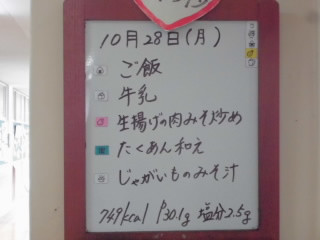 10月28日(月)
ご飯
牛乳
生揚げの肉みそ炒め
たくあん和え
じゃがいものみそ汁
749kcal P30.1g 塩分2.5g